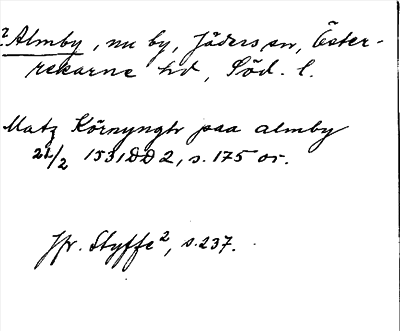 ² Almby, nu by, Jäders sn, Öster-
rekarne hd, Söd. l.
Matz Környngh paa almby
22/2 1531 DD 2, s. 175 or.
Jfr. Styffe², s. 237.